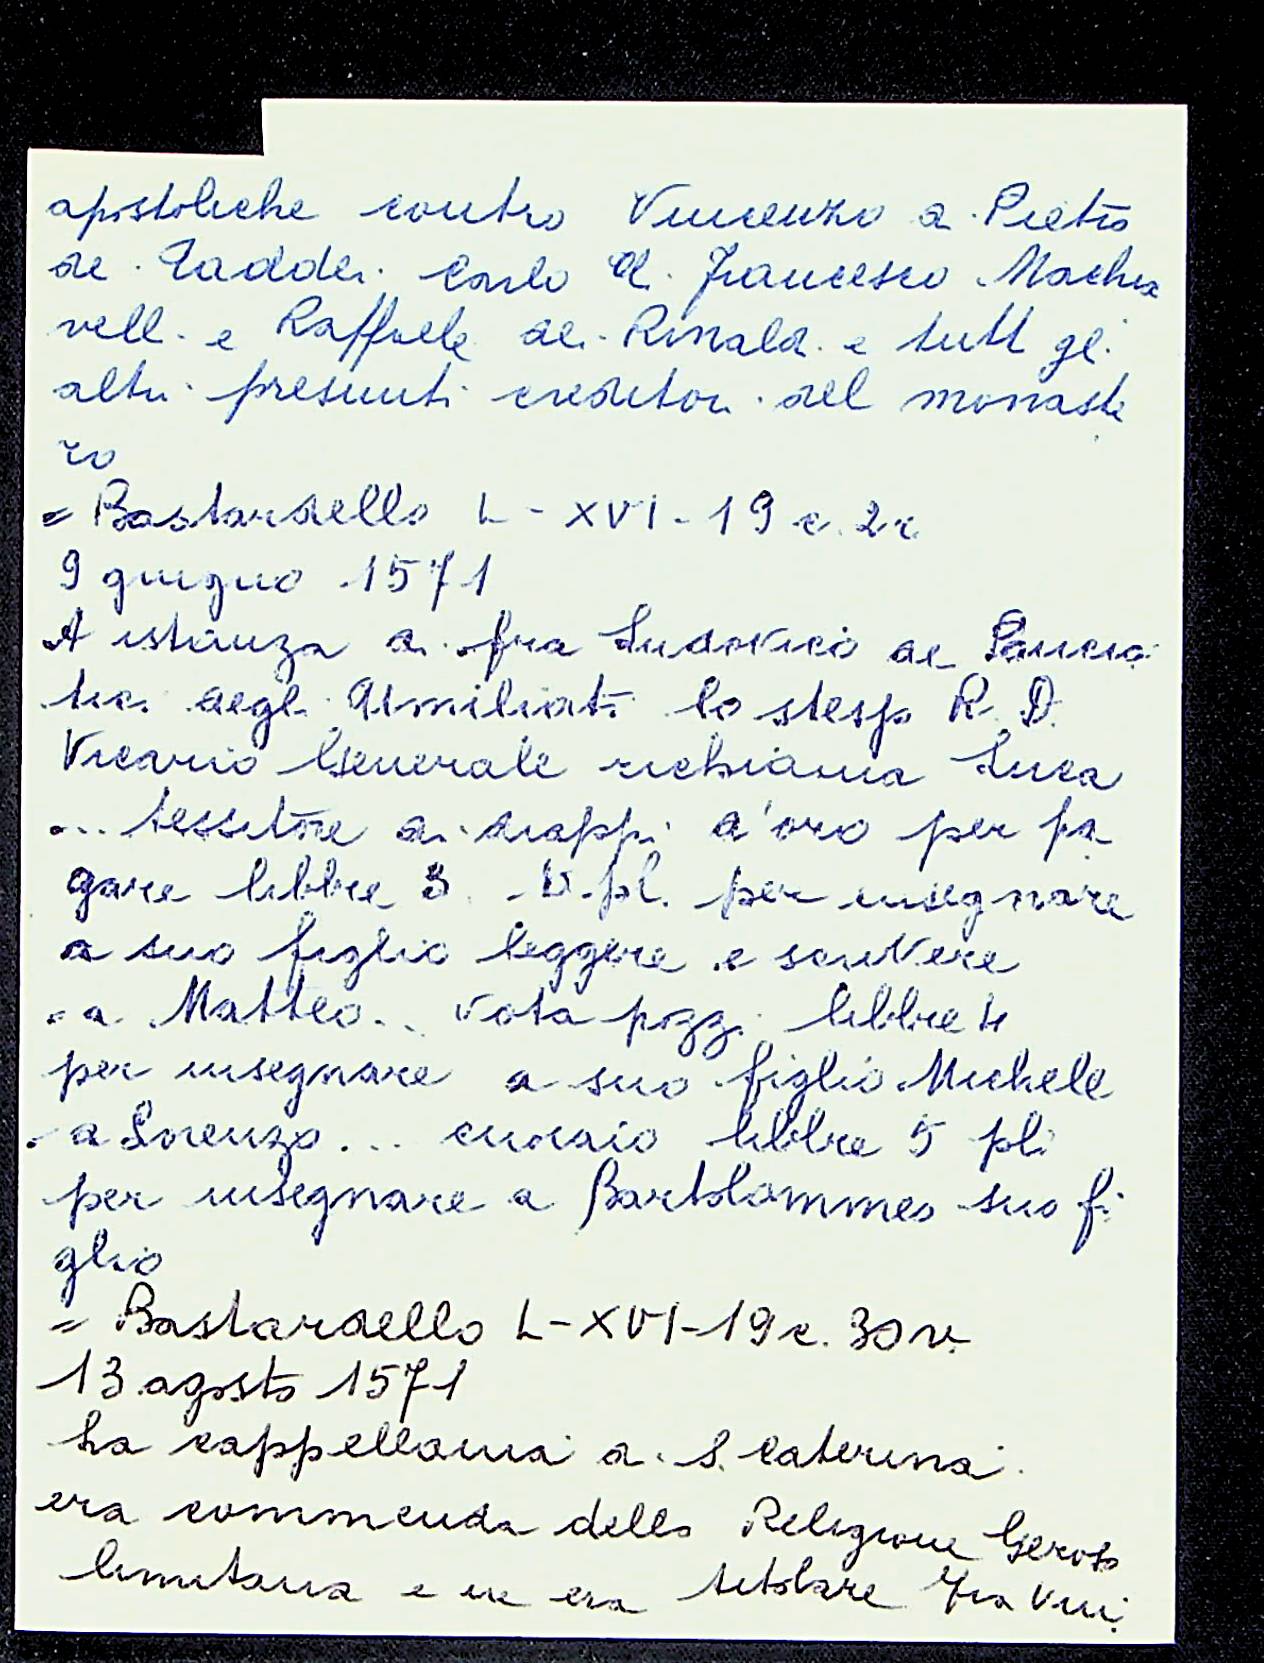 apostoliche contro Vincenzo di Pietro
de Taddei Carlo di Francesco Machia
velli e Raffaele dei Rinaldi e tutti gli
altri presunti creditori del monaste
ro
= Bastardello L - XVI - 19 c. 2r
9 giugno 1571
A istanza di fra Ludovico de Pancia
tici degli Umiliati lo stesso R. D.
Vicario Generale richiama Luca
... tessitore di drappi d'oro per pa
gare libbre 3. pl. per insegnare
a suo figlio leggere e scrivere
- a Matteo... vota pozzi libbre 4
per insegnare a suo figlio Michele
- a Lorenzo... libbre 5 pli
per insegnare a Bartolommeo suo fi
glio
= Bastardello L-XVI-19 c. 30v.
13 agosto 1571
La cappellania di S. Caterina
era commenda della Religione Geroso
limitana e ne era titolare Fra Vin